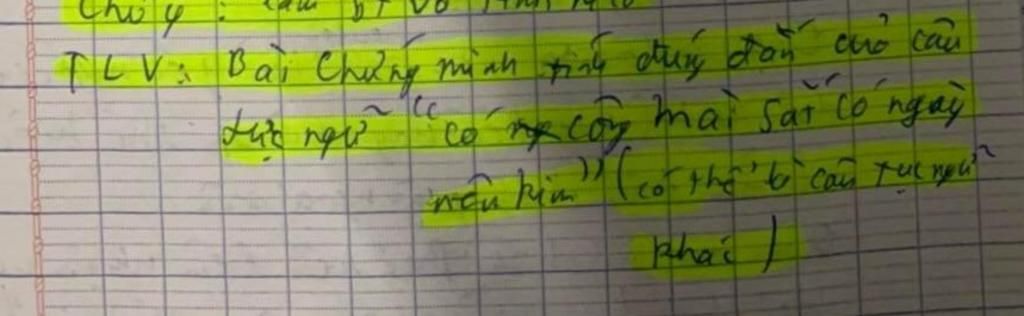 Chú ý :
TLV: Bài Chứng minh tính đúng đắn của câu
tục ngữ "có công mài sắt có ngày
nên kim" (có thể là câu tục ngữ
khác)